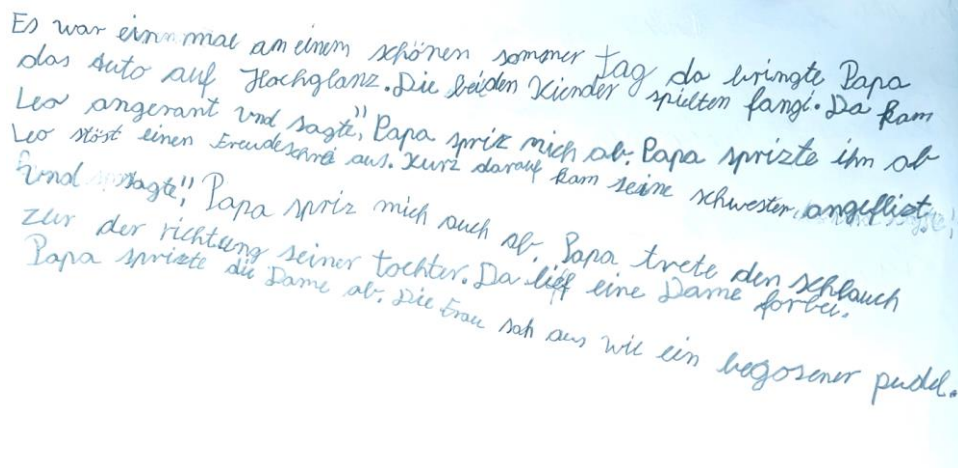 Es war einn mal an einem schönen sommer tag da bringte Papa
das Auto auf Hochglanz. Die beiden Kiender spielten fangi. Da kam
Leo angerant und sagte," Papa spriz mich ab. Papa sprizte ihm ab
Leo stöst einen Freudeschrei aus. Kurz darauf kam seine schwester angeflizt
und sagte," Papa spriz mich auch ab. Papa trete den schlauch
zur der richtung seiner tochter. Da lief eine Dame forbei.
Papa sprizte die Dame ab. Die Frau sah aus wie ein begosener pudel.